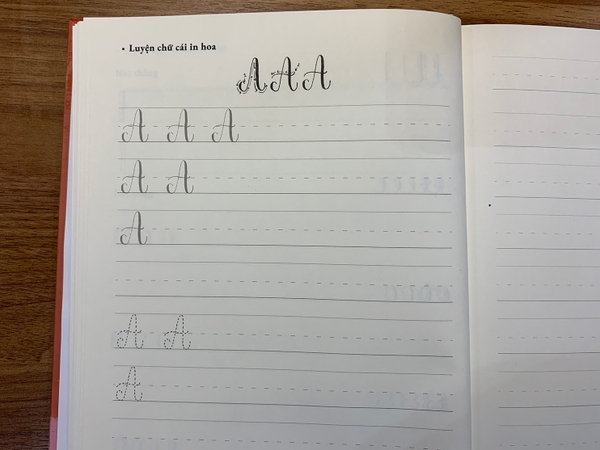 • Luyện chữ cái in hoa
A A A
A A A
A A
A
A A
A